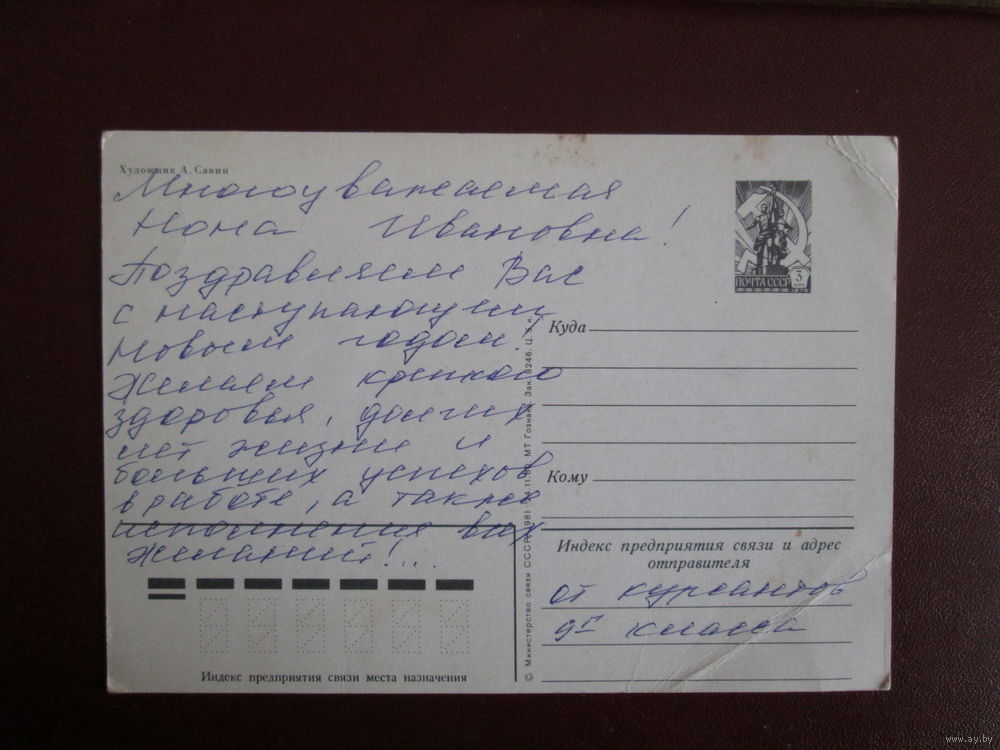 Художник А. Савин
Многоуважаемая
Нона Ивановна!
Поздравляем Вас
с наступающим
Новым годом.
Желаем крепкого
здоровья, долгих
лет жизни и
больших успехов
в работе, а также
исполнения всех
желаний!...
Индекс предприятия связи места назначения
© Министерство связи СССР, 1981 МТ Гознака. Зак. 8246. Ц. 5 к.
ПОЧТА СССР
3
1976
Куда
Кому
Индекс предприятия связи и адрес
отправителя
от курсантов
9г класса
www.ay.by